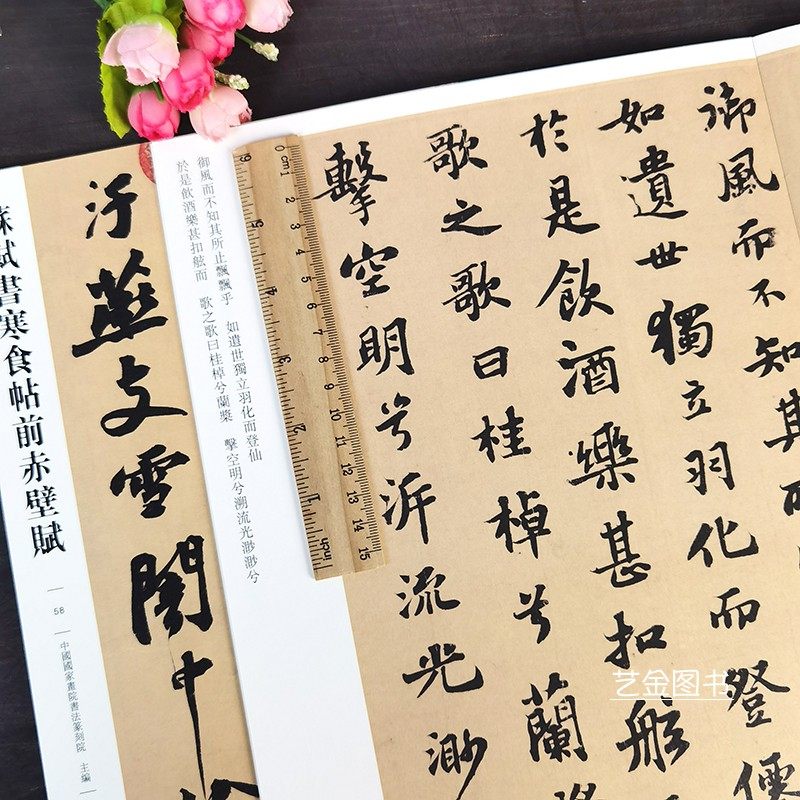 御風而不知其
如遺世獨立羽化而登僊
於是飲酒樂甚扣舷
歌之歌曰桂棹兮蘭
擊空明兮泝流光渺
0 cm 1 2 3 4 5 6 7 8 9 10 11 12 13 14 15
inch 1 2 3 4 5 6
御風而不知其所止飄飄乎 如遺世獨立羽化而登仙
於是飲酒樂甚扣舷而 歌之歌曰桂棹兮蘭槳 擊空明兮溯流光渺渺兮
汙燕支雪闇中
蘇軾書寒食帖前赤壁賦
58
中國國家畫院書法篆刻院 主編
艺金图书